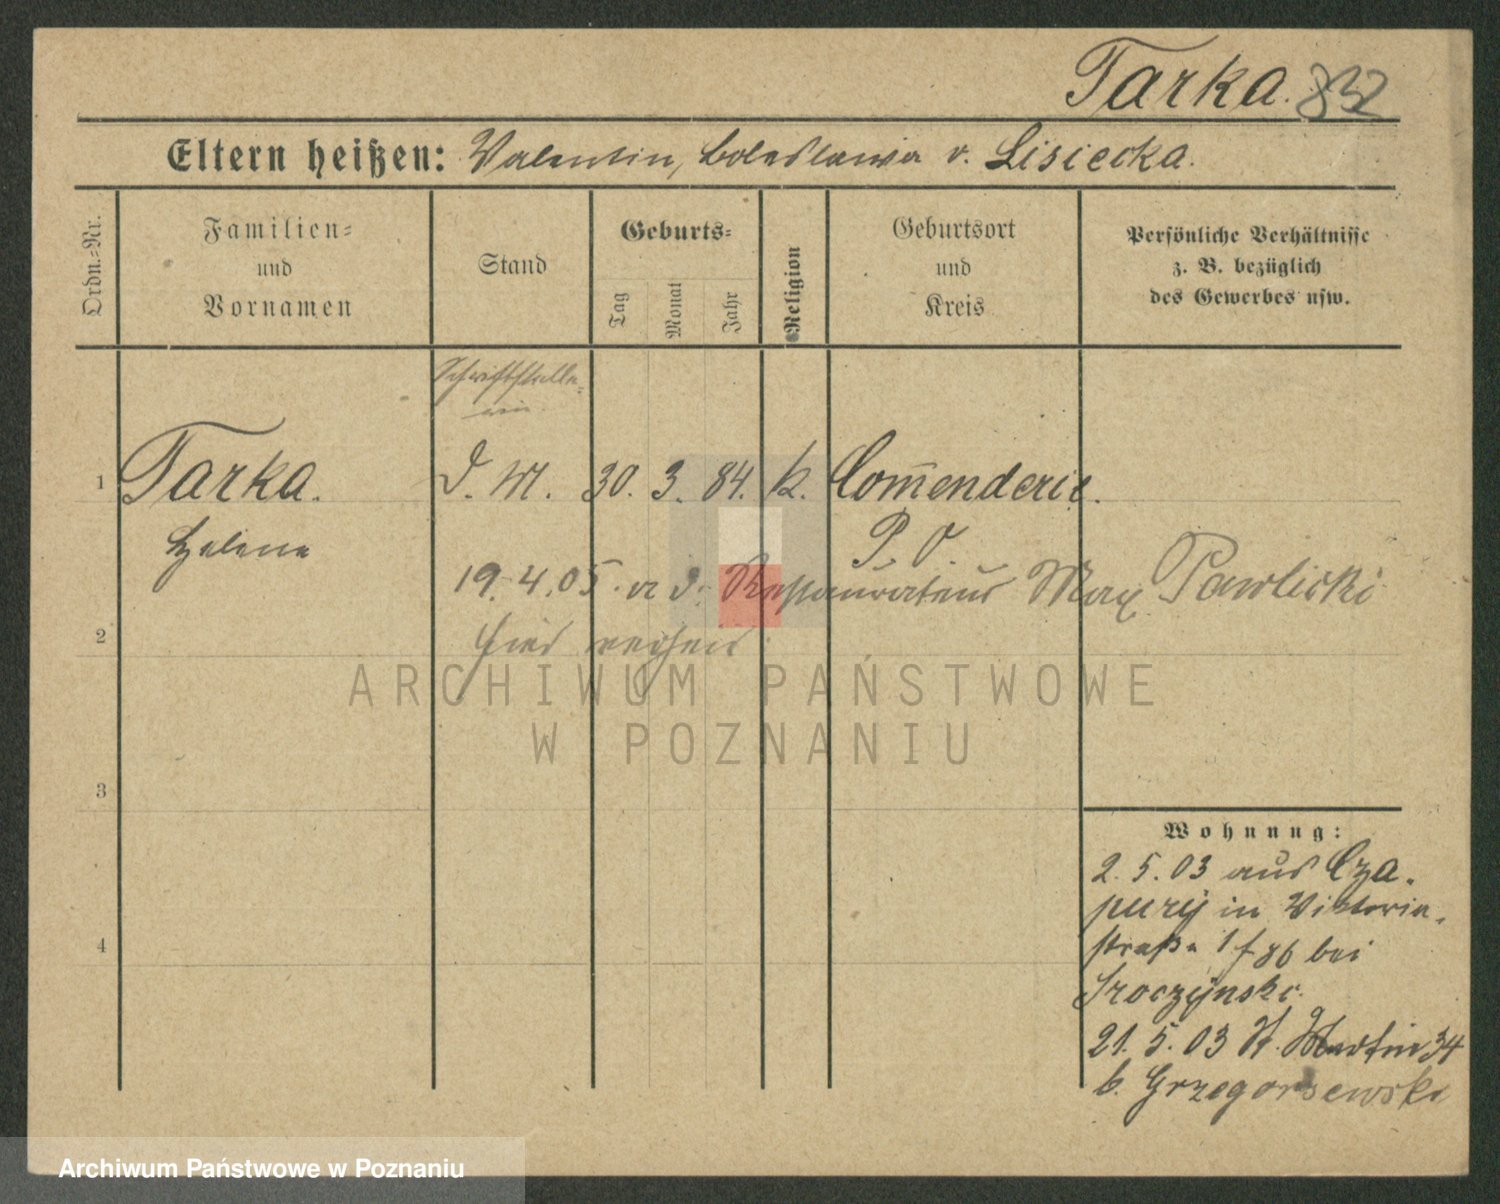 Tarka. 832
Eltern heißen: Valentin, Boleslawa v. Lisiecka.
Ordn.-Nr.
Familien-
und
Vornamen
Stand
Geburts-
Tag
Monat
Jahr
Religion
Geburtsort
und
Kreis
Persönliche Verhältnisse
z. B. bezüglich
des Gewerbes usw.
1 Tarka. D. M. 30. 3. 84. k. Com̄enderie.
Helene
P. O.
19. 4. 05. Restaurateur Max Pawlicki
hier
2
3
4
ARCHIWUM PAŃSTWOWE
W POZNANIU
Wohnung:
2. 5. 03 aus Cza-
pury in Viktoria-
straße 1 f 86 bei
Sroczynski.
21. 5. 03 St. Martin 34
b. Grzegorzewski
Archiwum Państwowe w Poznaniu